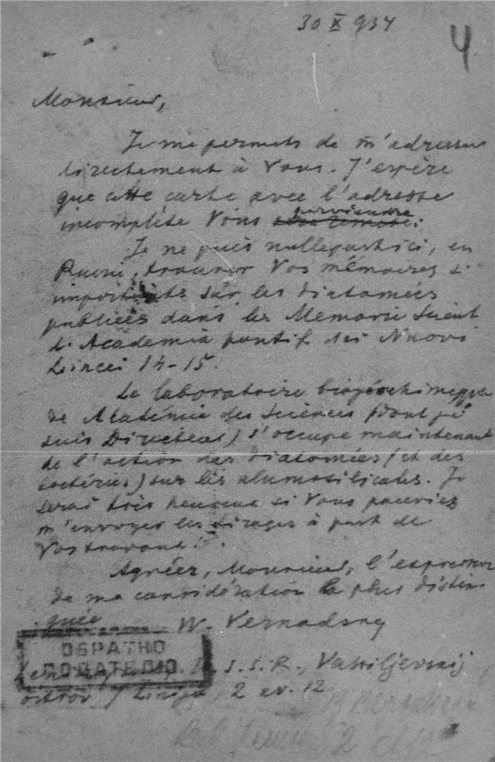 30 X 934
4
Monsieur,
Je me permets de m'adresser
directement à Vous. J'espère
que cette carte avec l'adresse
incomplète Vous parviendra.
Je ne puis nullepart ici, en
Russie, trouver Vos mémoires si
importants sur les diatomées
publiées dans les Memorie
d. Academia pontif. dei Nuovi
Lincei 14-15.
Le laboratoire biogéochimique
de Académie des Sciences (dont je
suis Directeur) s'occupe maintenant
de l'action des diatomées (et des
bactéries) sur les alumosilicates. Je
serai très heureux si Vous pouviez
m'envoyer les tirages à part de
Vos travaux.
Agréer, Monsieur, l'expression
de ma considération la plus distin
guée
W. Vernadsky
ОБРАТНО
ПОДАТЕЛЮ
S.S.R., Vassiljevskij
ostrov, 7 Linija, 2 кв. 12